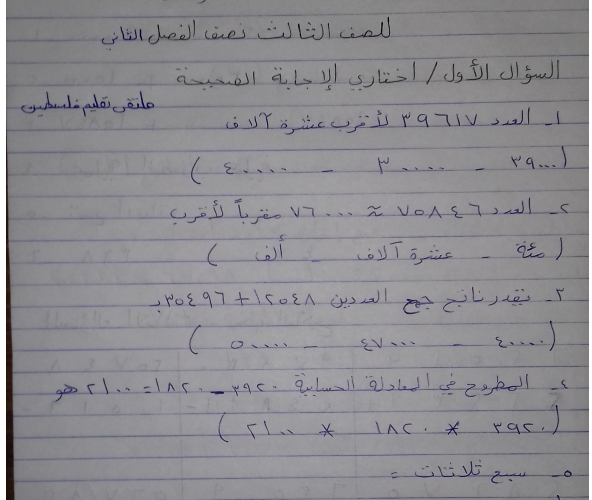 للصف الثالث نصف الفصل الثاني
السؤال الأول / اختاري الإجابة الصحيحة
ملتقى تعليم فلسطين
١- العدد ٣٩٦١٧ لأقرب عشرة آلاف
(٣٩٠٠٠ - ٣٠٠٠٠ - ٤٠٠٠٠)
٢- العدد ٧٥٨٤٦ ≈ ٧٦٠٠٠ مقرباً لأقرب
(مئة - عشرة آلاف - ألف)
٣- يقدر ناتج جمع العددين ١٢٥٤٨ + ٣٥٤٩٦ بـ
(٤٠٠٠٠ - ٤٧٠٠٠ - ٥٠٠٠٠)
٤- المطروح في المعادلة الحسابية ٣٩٢٠ - ١٨٢٠ = ٢١٠٠ هو
(٣٩٢٠ * ١٨٢٠ * ٢١٠٠)
٥- سبع ثلاثات =